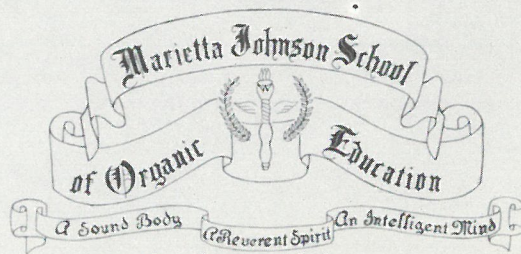 Marietta Johnson School
of Organic Education
A Sound Body A Reverent Spirit An Intelligent Mind